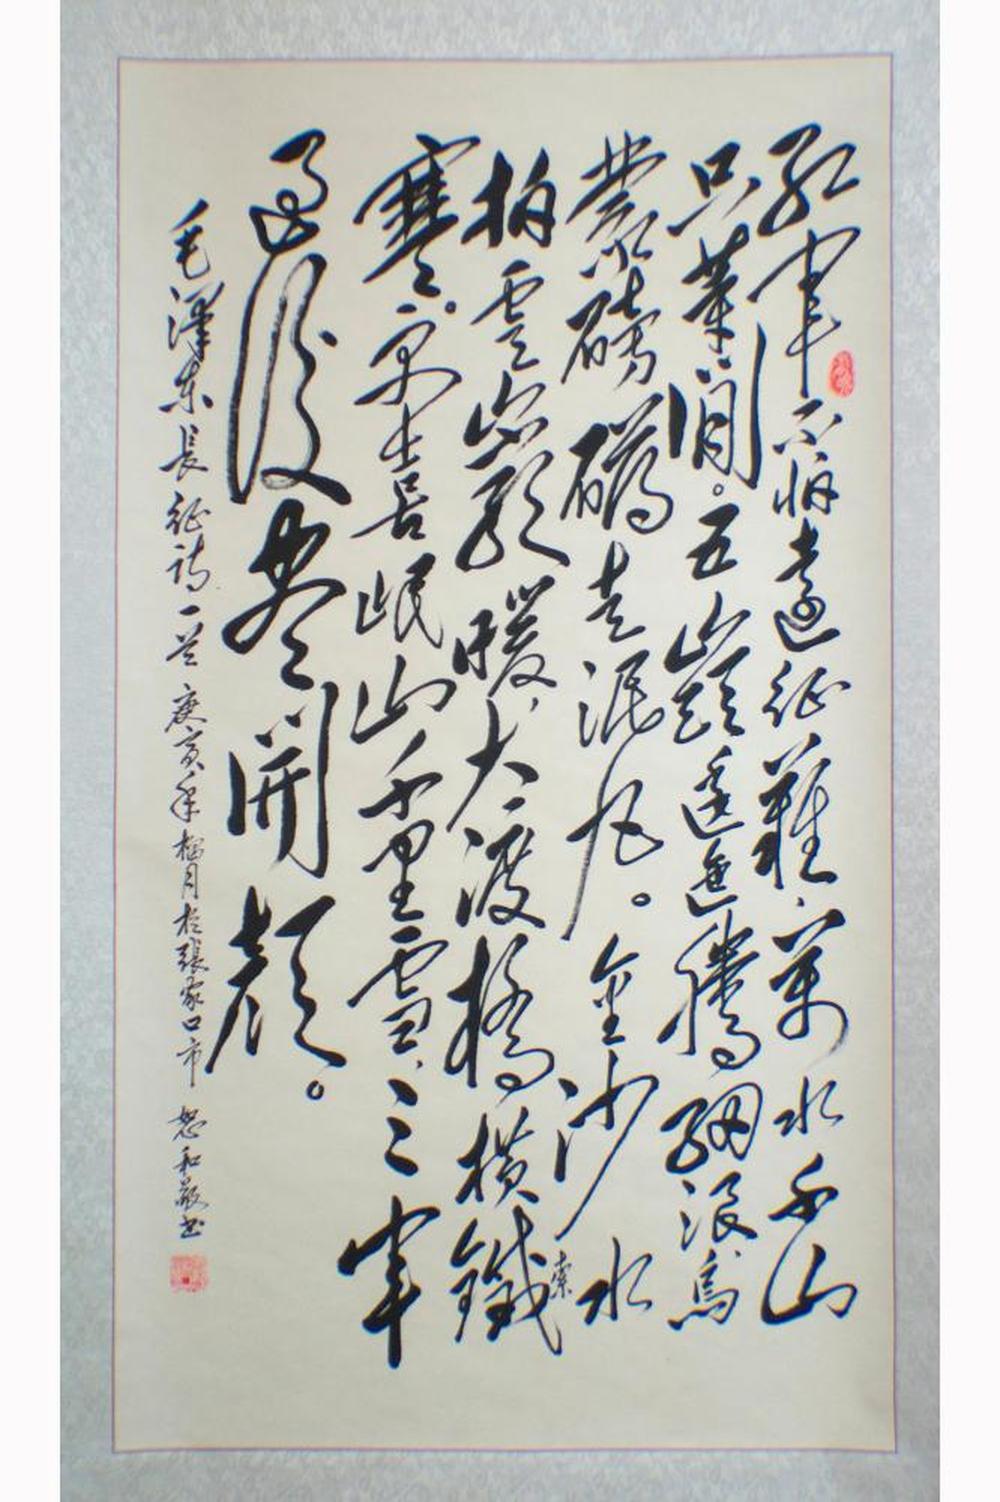 红军不怕远征難,萬水千山
只等闲。五嶺逶迤腾细浪,烏
蒙磅礴走泥丸。金沙水
拍雲崖暖,大渡橋横鐵索
寒。更喜岷山千里雪,三军
过後尽開颜。
毛澤东長征詩一首 庚寅年榴月於張家口市 和敬书